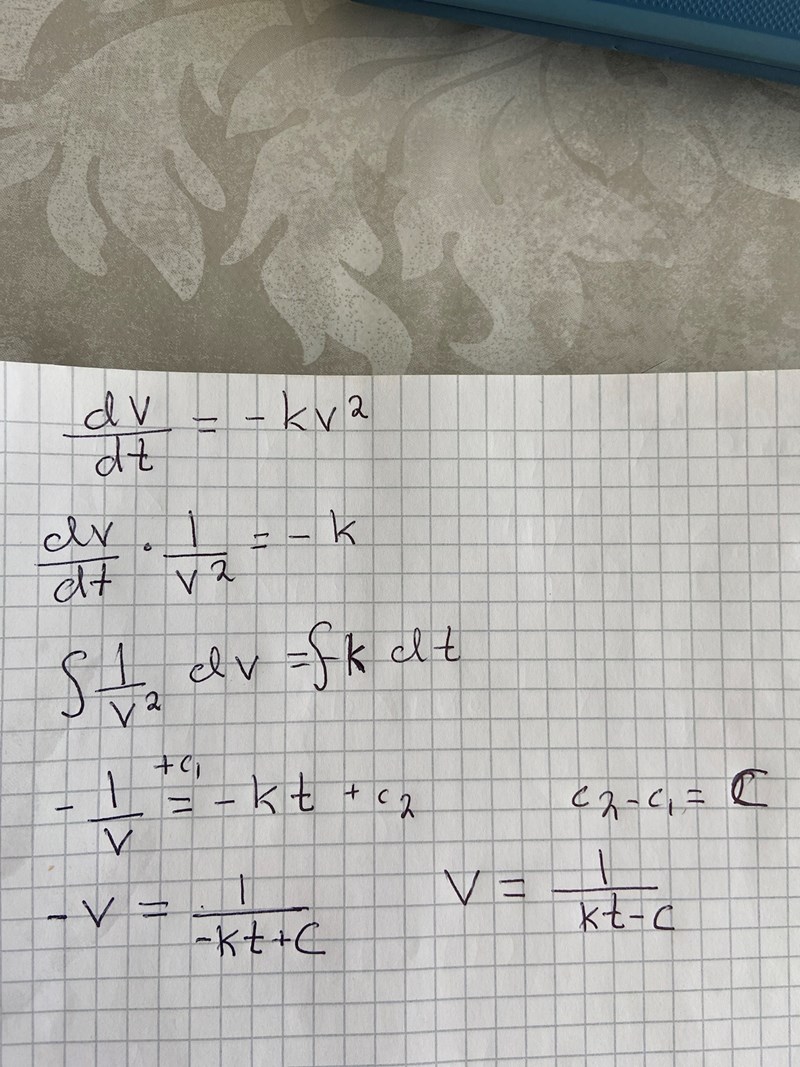 dv/dt = - kv²
dv/dt · 1/v² = - k
∫ 1/v² dv = ∫-k dt
- 1/v +c₁ = - kt + c₂    c₂-c₁ = C
- v = 1/(-kt+C)    v = 1/(kt-C)